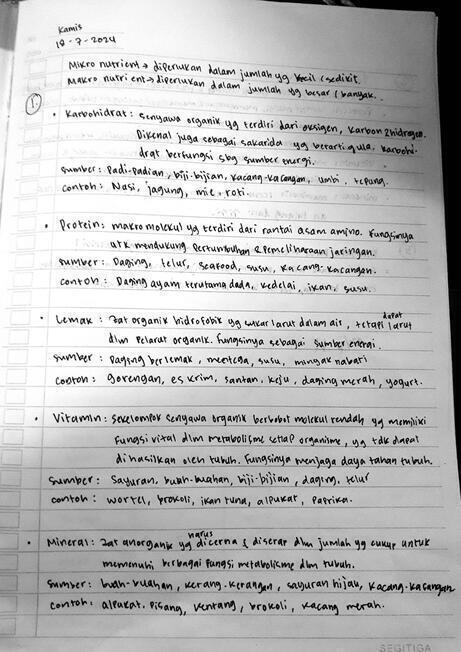 Kamis
18-7-2024
Mikro nutrient → diperlukan dalam jumlah yg kecil / sedikit.
Makro nutrient → diperlukan dalam jumlah yg besar / banyak.
1.
• Karbohidrat : senyawa organik yg terdiri dari oksigen, karbon & hidrogen.
Dikenal juga sebagai sakarida yg berarti gula, karbohi-
drat berfungsi sbg sumber energi.
Sumber : Padi-padian, biji-bijian, kacang-kacangan, umbi, tepung.
Contoh : Nasi, jagung, mie, roti.
• Protein : makromolekul yg terdiri dari rantai asam amino. Fungsinya
utk mendukung pertumbuhan & pemeliharaan jaringan.
Sumber : Daging, telur, seafood, susu, kacang-kacangan.
Contoh : Daging ayam terutama dada, kedelai, ikan, susu.
• Lemak : Zat organik hidrofobik yg sukar larut dalam air, tetapi dapat larut
dlm pelarut organik. Fungsinya sebagai sumber energi.
Sumber : Daging berlemak, mentega, susu, minyak nabati
Contoh : Gorengan, es krim, santan, keju, daging merah, yogurt.
• Vitamin : Sekelompok senyawa organik berbobot molekul rendah yg memiliki
fungsi vital dlm metabolisme setiap organisme, yg tdk dapat
dihasilkan oleh tubuh. Fungsinya menjaga daya tahan tubuh.
Sumber : Sayuran, buah-buahan, biji-bijian, daging, telur
Contoh : wortel, brokoli, ikan tuna, alpukat, paprika.
• Mineral : Zat anorganik yg harus dicerna & diserap dlm jumlah yg cukup untuk
memenuhi berbagai fungsi metabolisme dlm tubuh.
Sumber : buah-buahan, kerang-kerangan, sayuran hijau, kacang-kacangan
Contoh : alpukat, pisang, kentang, brokoli, kacang merah.
SEGITIGA